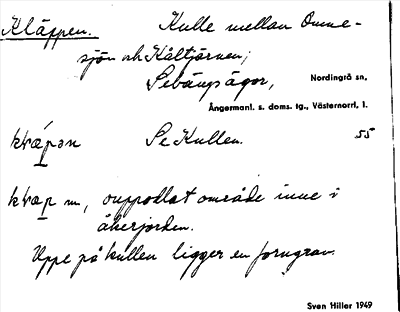 Kläppen. Kulle mellan Omne-
sjön och Kåltjärnen;
Sebångs ägor, Nordingrå sn,
Ångermanl. s. doms. tg., Västernorrl. l.
Se Kullen. 55
m, ouppodlat område inne i
åkerjorden.
Uppe på kullen ligger en forngrav.
Sven Hiller 1949